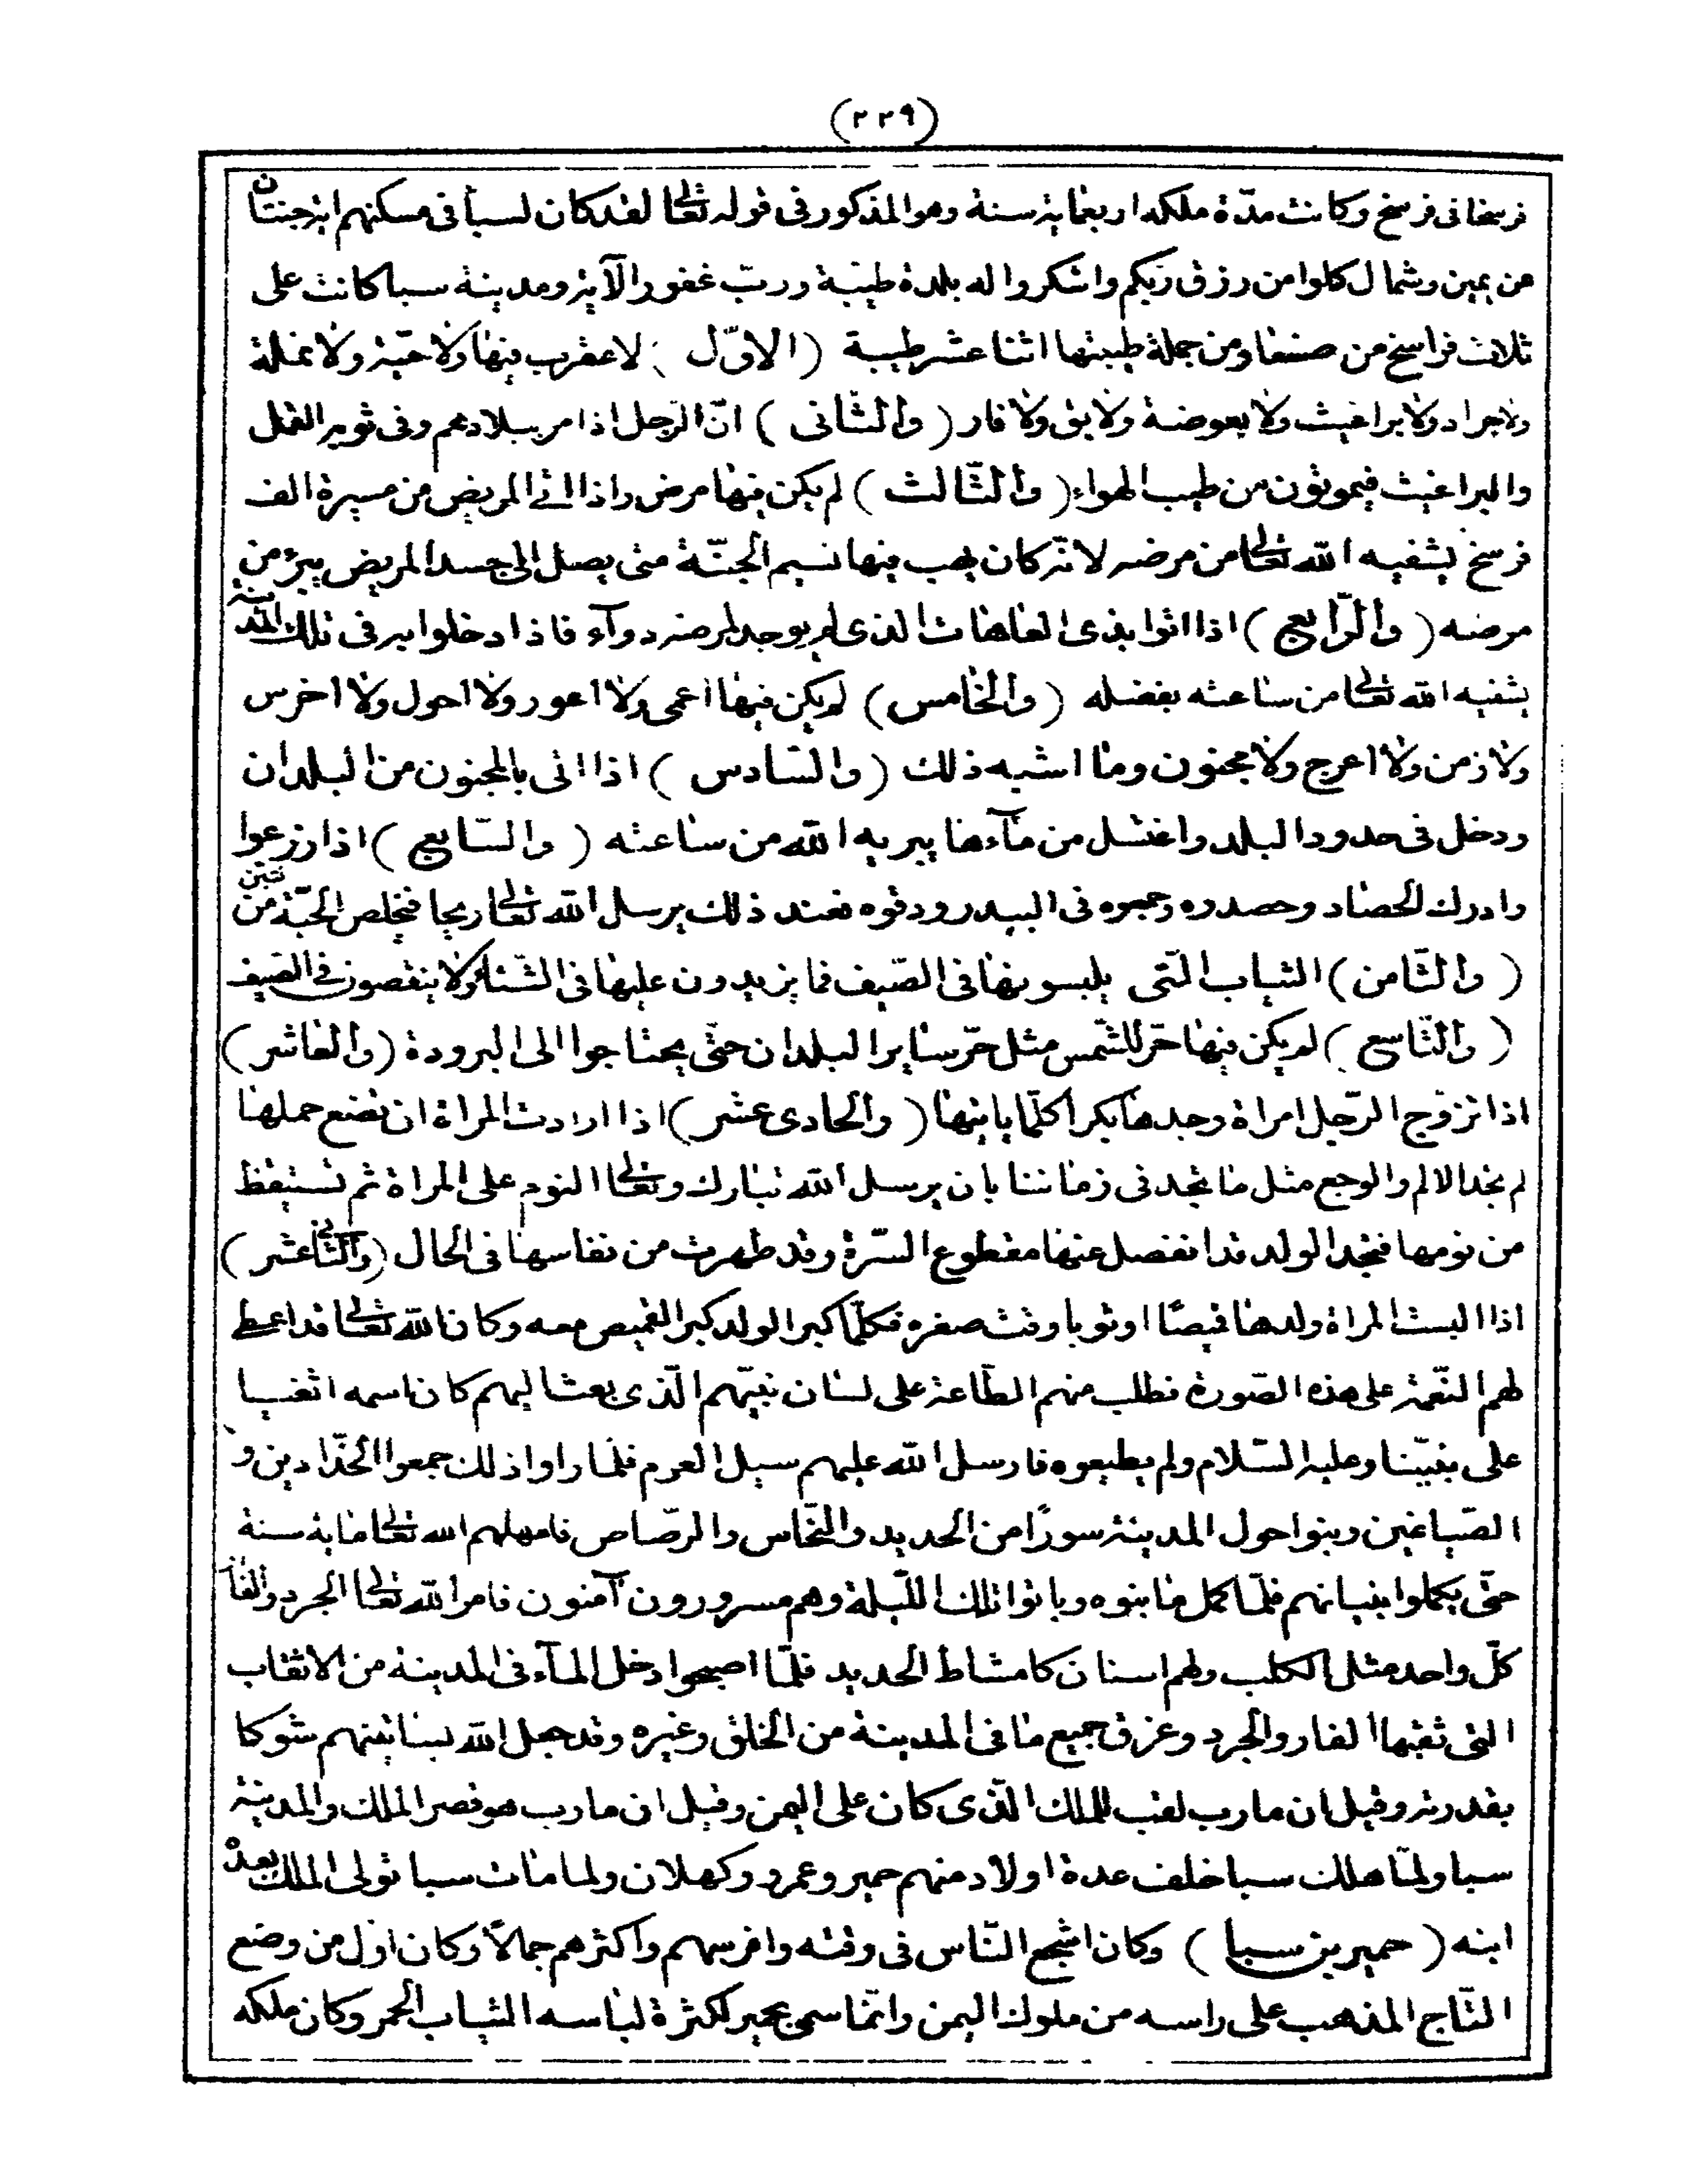 (٢٢٩)
فرسخا فى فرسخ وكانت مدّة ملكه اربعمائة سنة وهو المذكور فى قوله تعالى لقد كان لسبأ فى مسكنهم اية جنتان
عن يمين وشمال كلوا من رزق ربكم واشكروا له بلدة طيبة وربّ غفور الآية ومدينة سبا كانت على
ثلاث فراسخ من صنعا ومن جملة طيبتها اثنا عشر طيبة (الاوّل) لا عقرب فيها ولا حيّة ولا نملة
ولا جراد ولا براغيث ولا بعوضة ولا بق ولا فار (والثّانى) انّ الرّجل اذا مر ببلادهم وفى ثوبه القمل
والبراغيث فيموتون من طيب الهواء (والثّالث) لم يكن فيها مرض واذا اتى المريض من مسيرة الف
فرسخ يشفيه الله تعالى من مرضه لانّه كان يهب فيها نسيم الجنّة متى يصل الى جسد المريض يبرؤ من
مرضه (والرّابع) اذا اتوا بذى العاهات الذى لم يوجد لمرضه دوآء فاذا دخلوا به فى تلك المدينة
يشفيه الله تعالى من ساعته بفضله (والخامس) لم يكن فيها اعمى ولا اعور ولا احول ولا اخرس
ولا زمن ولا اعرج ولا مجنون وما اشبه ذلك (والسّادس) اذا اتى بالمجنون من البلدان
ودخل فى حدود البلد واغتسل من مآءها يبريه الله من ساعته (والسّابع) اذا زرعوا
وادرك الحصاد وحصدوه وجمعوه فى البيدر ودقوه فعند ذلك يرسل الله تعالى ريحا فتخلص الحبّة من تبن
(والثّامن) الثياب الّتى يلبسونها فى الصّيف فما يزيدون عليها فى الشّتاء ولا ينقصون فى الصّيف
(والتّاسع) لم يكن فيها حرّ للشّمس مثل حرّ ساير البلدان حتّى يحتاجوا الى البرودة (والعاشر)
اذا تزوّج الرّجل امراة وجدها بكرا كلّما ياتيها (والحادى عشر) اذا ارادت المراة ان تضع حملها
لم تجد الالم والوجع مثل ما تجد فى زماننا بان يرسل الله تبارك وتعالى النوم على المراة ثم تستيقظ
من نومها فتجد الولد قد انفصل عنها مقطوع السّرة وقد طهرت من نفاسها فى الحال (والثّانى عشر)
اذا البست المراة ولدها قميصًا او ثوبا وقت صغره فكلّما كبر الولد كبر القميص معه وكان الله تعالى قد اعطى
لهم النّعمة على هذه الصّورة فطلب منهم الطّاعة على لسان نبيّهم الّذى بعث اليهم كان اسمه اثفسيا
على نبيّنا وعليه السّلام ولم يطيعوه فارسل الله عليهم سيل العرم فلمّا راوا ذلك جمعوا الحدّادين و
الصّباغين وبنوا حول المدينة سورًا من الحديد والنّحاس والرّصاص فامهلهم الله تعالى مأية سنة
حتّى يكملوا بنيانهم فلمّا كمل ما بنوه وباتوا تلك اللّيلة وهم مسرورون آمنون فامر الله تعالى الجرد والفأر
كلّ واحد مثل الكلب ولهم اسنان كامشاط الحديد فلمّا اصبحوا دخل المآء فى المدينة من الانقاب
التى ثقبها الفار والجرد وغرق جميع ما فى المدينة من الخلق وغيره وقد جعل الله بساتينهم شوكا
بقدرته وقيل ان مارب لقب للملك الّذى كان على اليمن وقيل ان مارب هو قصر الملك والمدينة
سبا ولمّا هلك سبا خلف عدة اولاد منهم حمير وعمرو وكهلان ولما مات سبا تولى الملك بعده
ابنه (حمير بن سبا) وكان اشجع النّاس فى وقته وافرسهم واكثرهم جمالاً وكان اوّل من وضع
التّاج المذهب على راسه من ملوك اليمن وانّما سمى بحمير لكثرة لباسه الثياب الحمر وكان ملكه